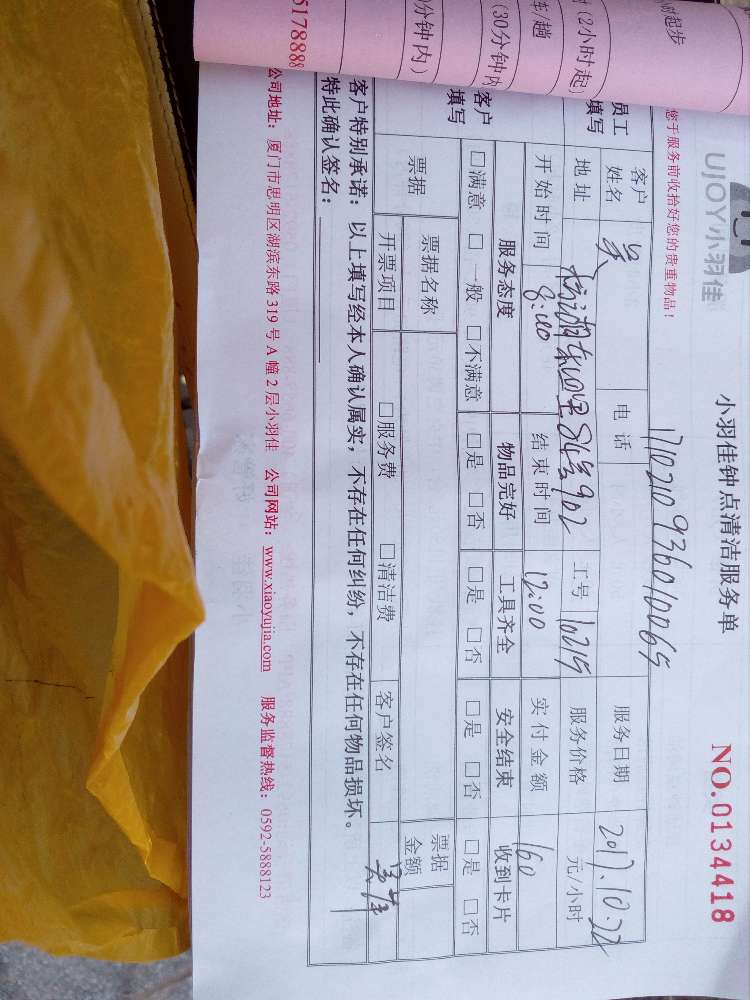 UJOY小羽佳
小羽佳钟点清洁服务单
NO.0134418
您于服务前收拾好您的贵重物品！
1710210936010065
员工填写
客户姓名 吴 电话 服务日期 2017.10.22
地址 801号902 工号 10219 服务价格 元/小时
开始时间 8:00 结束时间 12:00 实付金额 160
客户填写
服务态度 物品完好 工具齐全 安全结束 收到卡片
□满意 □一般 □不满意 □是 □否 □是 □否 □是 □否 □是 □否
票据 票据名称 票据金额
开票项目 □服务费 □清洁费 客户签名
客户特别承诺：以上填写经本人确认属实，不存在任何纠纷，不存在任何物品损坏。
特此确认签名：
公司地址：厦门市思明区湖滨东路319号A幢2层小羽佳 公司网站：www.xiaoyujia.com 服务监督热线：0592-5888123
起步
(2小时起
车/趟
(30分钟内
分钟内)
5178888